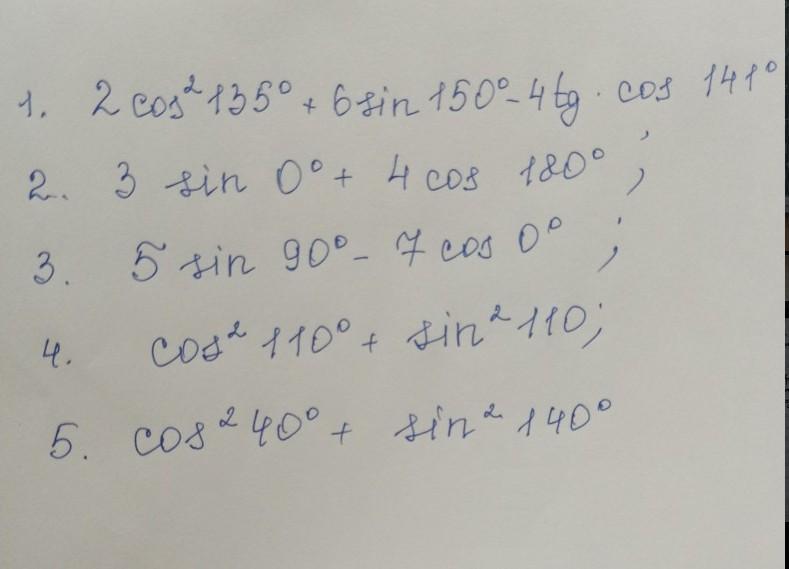 1. 2 cos² 135° + 6 sin 150° - 4 tg · cos 141°
2. 3 sin 0° + 4 cos 180° ;
3. 5 sin 90° - 7 cos 0° ;
4. cos² 110° + sin² 110;
5. cos² 40° + sin² 140°